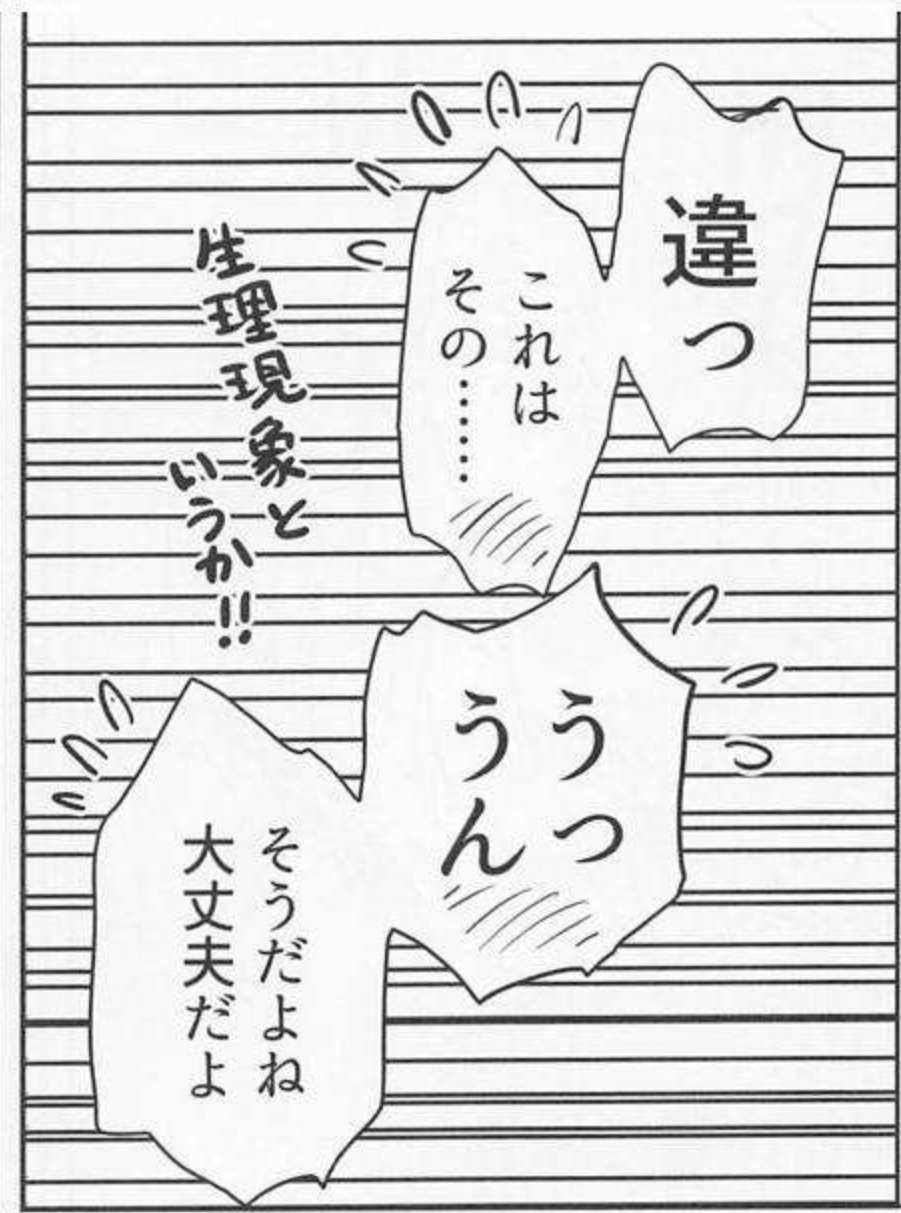 違っ
これは
その……
生理現象と
いうか!!
うっ
うん
そうだよね
大丈夫だよ